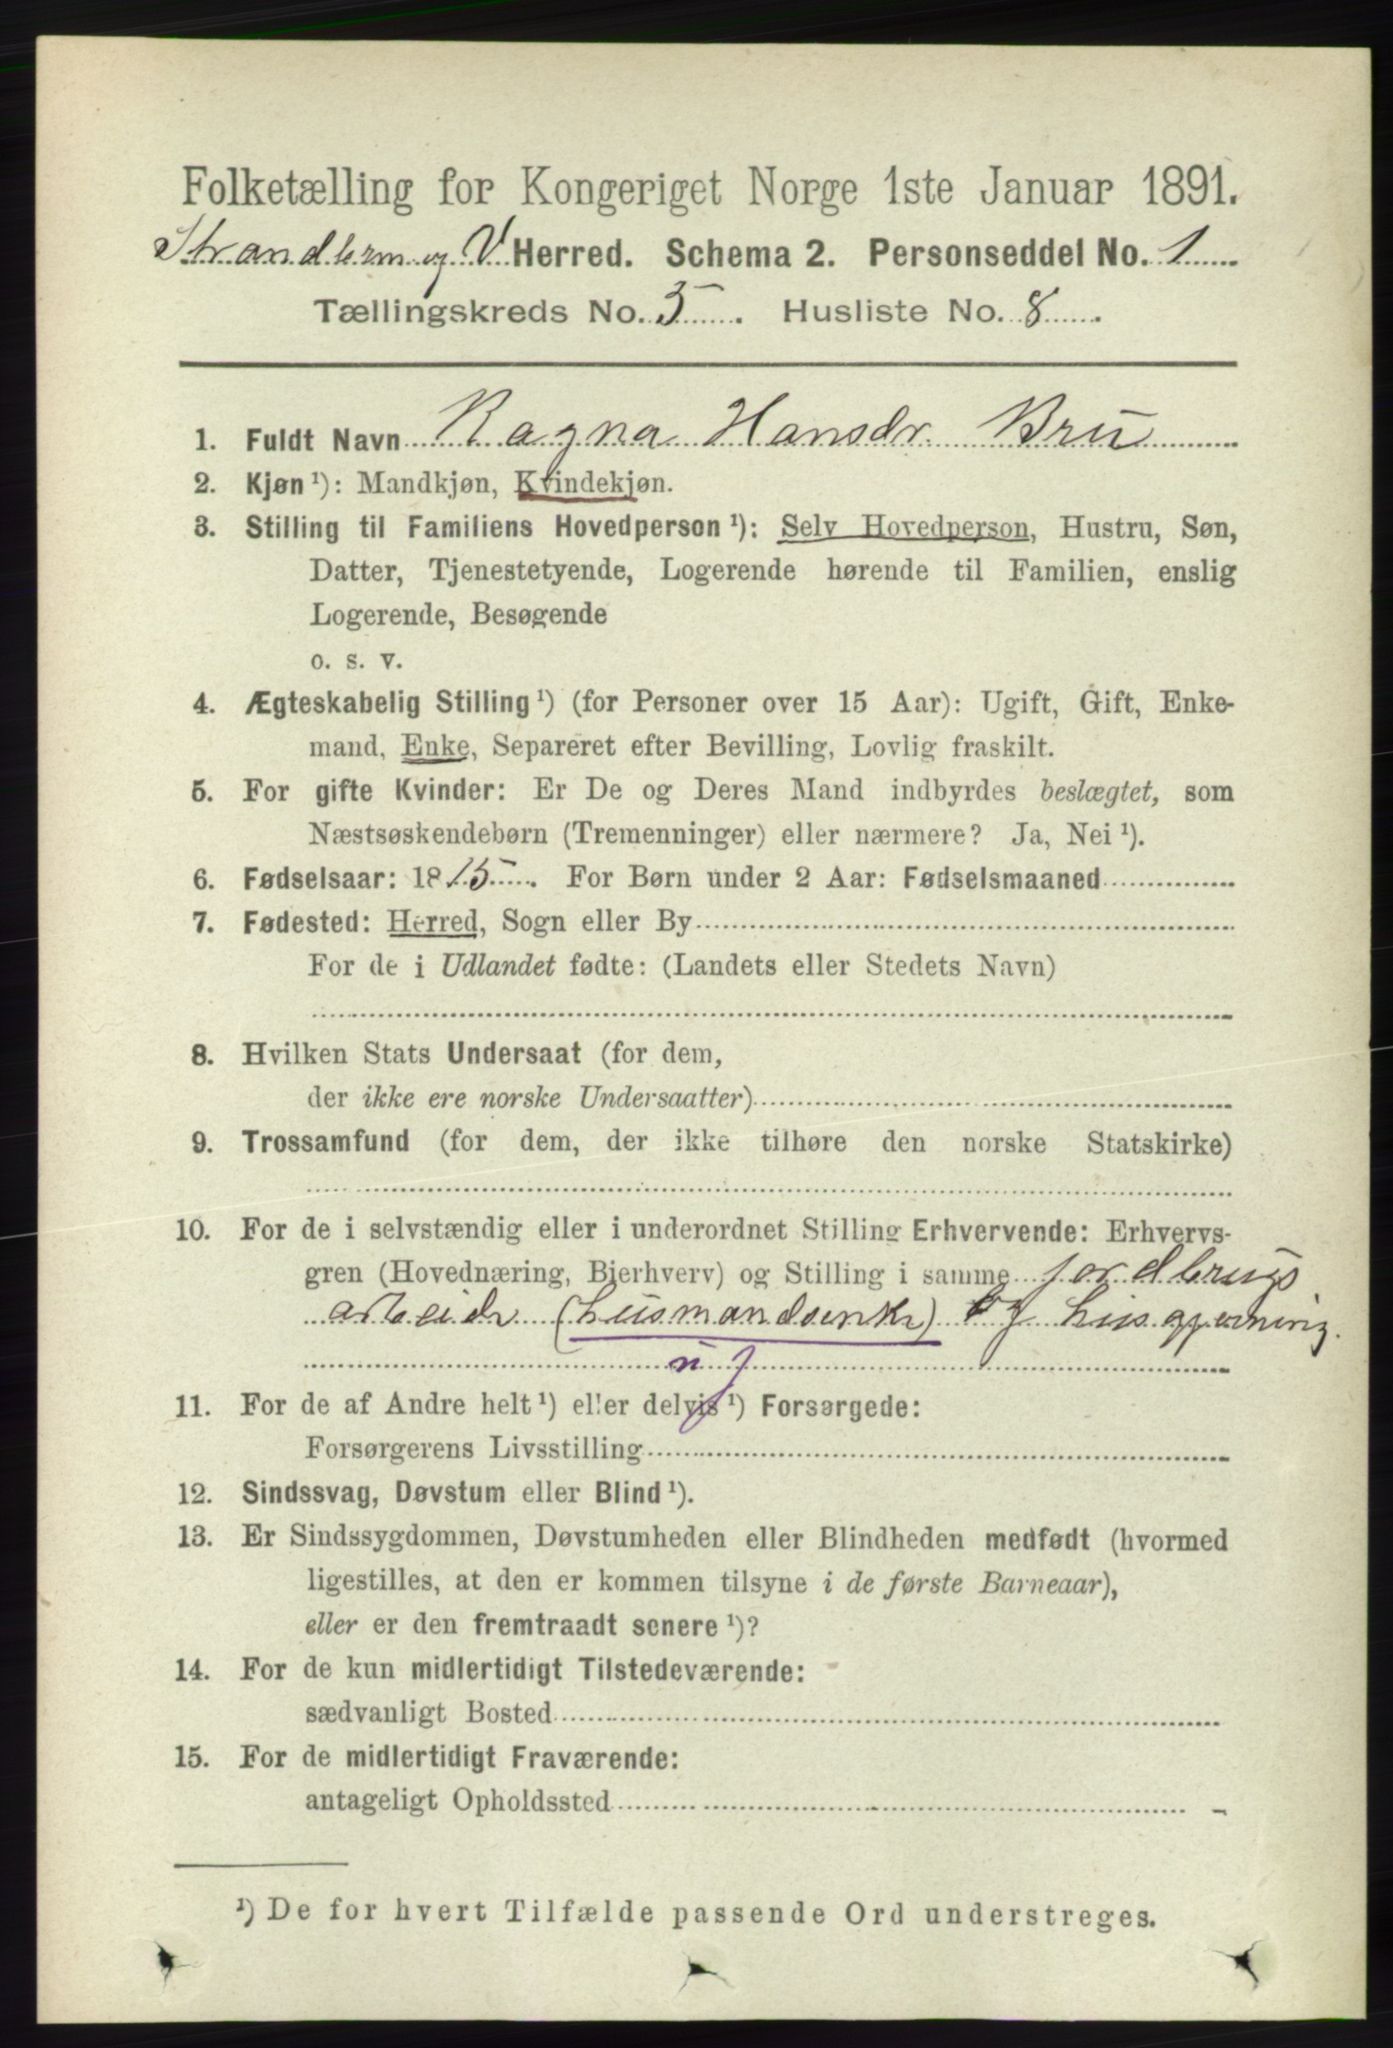 Folketælling for Kongeriget Norge 1ste Januar 1891.
Strandberm og V Herred. Schema 2. Personseddel No. 1
Tællingskreds No. 5. Husliste No. 8.
1. Fuldt Navn Ragna Hansdr. Bru
2. Kjøn ¹): Mandkjøn, Kvindekjøn.
3. Stilling til Familiens Hovedperson ¹): Selv Hovedperson, Hustru, Søn,
Datter, Tjenestetyende, Logerende hørende til Familien, enslig
Logerende, Besøgende
o. s. v.
4. Ægteskabelig Stilling ¹) (for Personer over 15 Aar): Ugift, Gift, Enke-
mand, Enke, Separeret efter Bevilling, Lovlig fraskilt.
5. For gifte Kvinder: Er De og Deres Mand indbyrdes beslægtet, som
Næstsøskendebørn (Tremenninger) eller nærmere? Ja, Nei ¹).
6. Fødselsaar: 1815. For Børn under 2 Aar: Fødselsmaaned
7. Fødested: Herred, Sogn eller By
For de i Udlandet fødte: (Landets eller Stedets Navn)
8. Hvilken Stats Undersaat (for dem,
der ikke ere norske Undersaatter)
9. Trossamfund (for dem, der ikke tilhøre den norske Statskirke)
10. For de i selvstændig eller i underordnet Stilling Erhvervende: Erhvervs-
gren (Hovednæring, Bierhverv) og Stilling i samme jordbrugs
arbeide (husmandsenke) og husgjerning.
11. For de af Andre helt ¹) eller delvis ¹) Forsørgede:
Forsørgerens Livsstilling
12. Sindssvag, Døvstum eller Blind ¹).
13. Er Sindssygdommen, Døvstumheden eller Blindheden medfødt (hvormed
ligestilles, at den er kommen tilsyne i de første Barneaar),
eller er den fremtraadt senere ¹)?
14. For de kun midlertidigt Tilstedeværende:
sædvanligt Bosted
15. For de midlertidigt Fraværende:
antageligt Opholdssted
¹) De for hvert Tilfælde passende Ord understreges.